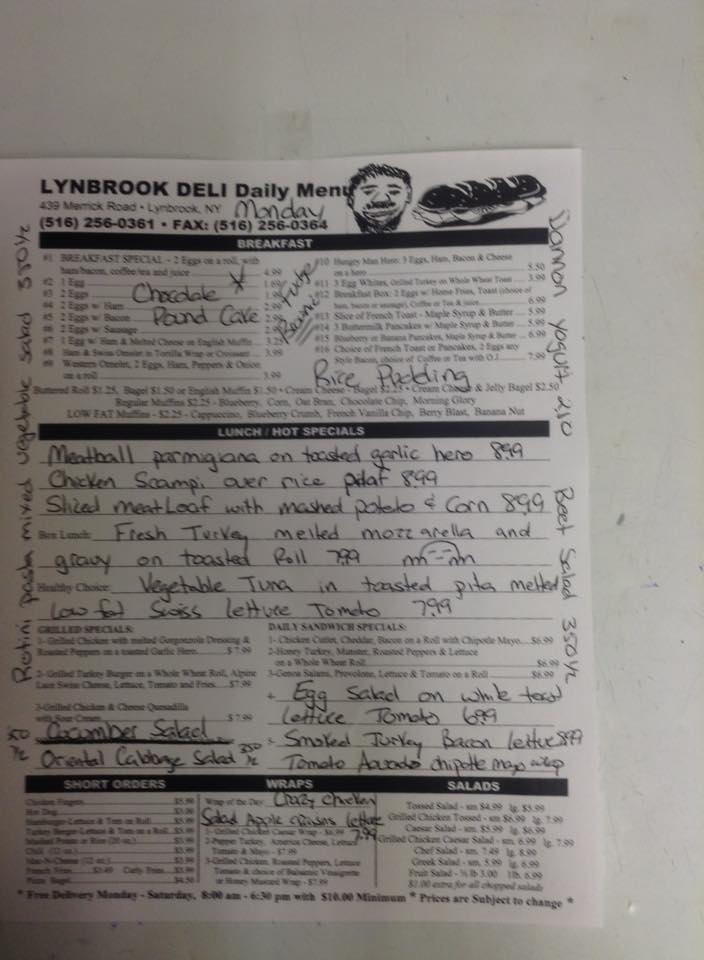 LYNBROOK DELI Daily Menu
439 Merrick Road • Lynbrook, NY Monday
(516) 256-0361 • FAX: (516) 256-0364
BREAKFAST
#1 BREAKFAST SPECIAL - 2 Eggs on a roll, with
ham/bacon, coffee/tea and juice 4.99
#2 1 Egg 1.69
#3 2 Eggs
#4 2 Eggs w/ Ham 2.99
#5 2 Eggs w/ Bacon
#6 2 Eggs w/ Sausage
#7 1 Egg w/ Ham & Melted Cheese on English Muffin 3.25
#8 Ham & Swiss Omelet in Tortilla Wrap or Croissant 3.99
#9 Western Omelet, 2 Eggs, Ham, Peppers & Onion
on a roll 3.99
Chocolate
Pound Cake
Fudge
Brownie
#10 Hungry Man Hero: 3 Eggs, Ham, Bacon & Cheese
on a hero 5.50
#11 3 Egg Whites, Grilled Turkey on Whole Wheat Toast 3.99
#12 Breakfast Box: 2 Eggs w/ Home Fries, Toast (choice of
ham, bacon or sausage), Coffee or Tea & juice 6.99
#13 Slice of French Toast - Maple Syrup & Butter 5.99
#14 3 Buttermilk Pancakes w/ Maple Syrup & Butter 5.99
#15 Blueberry or Banana Pancakes, Maple Syrup & Butter 6.99
#16 Choice of French Toast or Pancakes, 2 Eggs any
Style Bacon, choice of Coffee or Tea with O.J. 7.99
Rice Pudding
Buttered Roll $1.25, Bagel $1.50 or English Muffin $1.50 • Cream Cheese Bagel $2.25 • Cream Cheese & Jelly Bagel $2.50
Regular Muffins $2.25 - Blueberry, Corn, Oat Bran, Chocolate Chip, Morning Glory
LOW FAT Muffins - $2.25 - Cappuccino, Blueberry Crumb, French Vanilla Chip, Berry Blast, Banana Nut
Rotini pasta mixed vegetable salad 350 ½
Dannon yogurt 2.10
Beet Salad 350 ½
LUNCH / HOT SPECIALS
Meatball parmigiana on toasted garlic hero 8.99
Chicken Scampi over rice pilaf 8.99
Sliced meatLoaf with mashed potato & Corn 8.99
Box Lunch: Fresh Turkey melted mozzarella and
gravy on toasted Roll 7.99
Healthy Choice: Vegetable Tuna in toasted pita melted
low fat Swiss lettuce Tomato 7.99
GRILLED SPECIALS:
1- Grilled Chicken with melted Gorgonzola Dressing &
Roasted Peppers on a toasted Garlic Hero $7.99
2- Grilled Turkey Burger on a Whole Wheat Roll, Alpine
Lace Swiss Cheese, Lettuce, Tomato and Fries $7.99
3-Grilled Chicken & Cheese Quesadilla
with Sour Cream $7.99
350 ½ Cucumber Salad
Oriental Cabbage Salad 350 ½
DAILY SANDWICH SPECIALS:
1- Chicken Cutlet, Cheddar, Bacon on a Roll with Chipotle Mayo $6.99
2-Honey Turkey, Munster, Roasted Peppers & Lettuce
on a Whole Wheat Roll $6.99
3-Genoa Salami, Provolone, Lettuce & Tomato on a Roll $6.99
Egg Salad on white toast
lettuce Tomato 6.99
Smoked Turkey Bacon lettuce 8.99
Tomato Avocado chipotle mayo wrap
SHORT ORDERS
Chicken Fingers $5.99
Hot Dog
Hamburger-Lettuce & Tom on Roll
Turkey Burger-Lettuce & Tom on a Roll
Mashed Potato or Rice (20 oz.)
Chili (12 oz.)
Mac-N-Cheese (12 oz.) $3.99
French Fries $3.49 Curly Fries $3.99
Pizza Bagel $4.50
WRAPS
Wrap of the Day: Crazy Chicken
Salad Apple craisins lettuce
7.99
1- Grilled Chicken Caesar Wrap - $6.99
2-Pepper Turkey, America Cheese, Lettuce
Tomato & Mayo - $7.99
3-Grilled Chicken, Roasted Peppers, Lettuce
Tomato & choice of Balsamic Vinaigrette
or Honey Mustard Wrap - $7.99
SALADS
Tossed Salad - sm $4.99 lg. $5.99
Grilled Chicken Tossed - sm $6.99 lg. 7.99
Caesar Salad - sm $5.99 lg $6.99
Grilled Chicken Caesar Salad - sm. 6.99 lg. 7.99
Chef Salad - sm. 7.49 lg. 8.99
Greek Salad - sm. 5.99 lg. 6.99
Fruit Salad - ½ lb 3.00 1lb. 6.99
$1.00 extra for all chopped salads
* Free Delivery Monday - Saturday, 8:00 am - 6:30 pm with $10.00 Minimum * Prices are Subject to change *